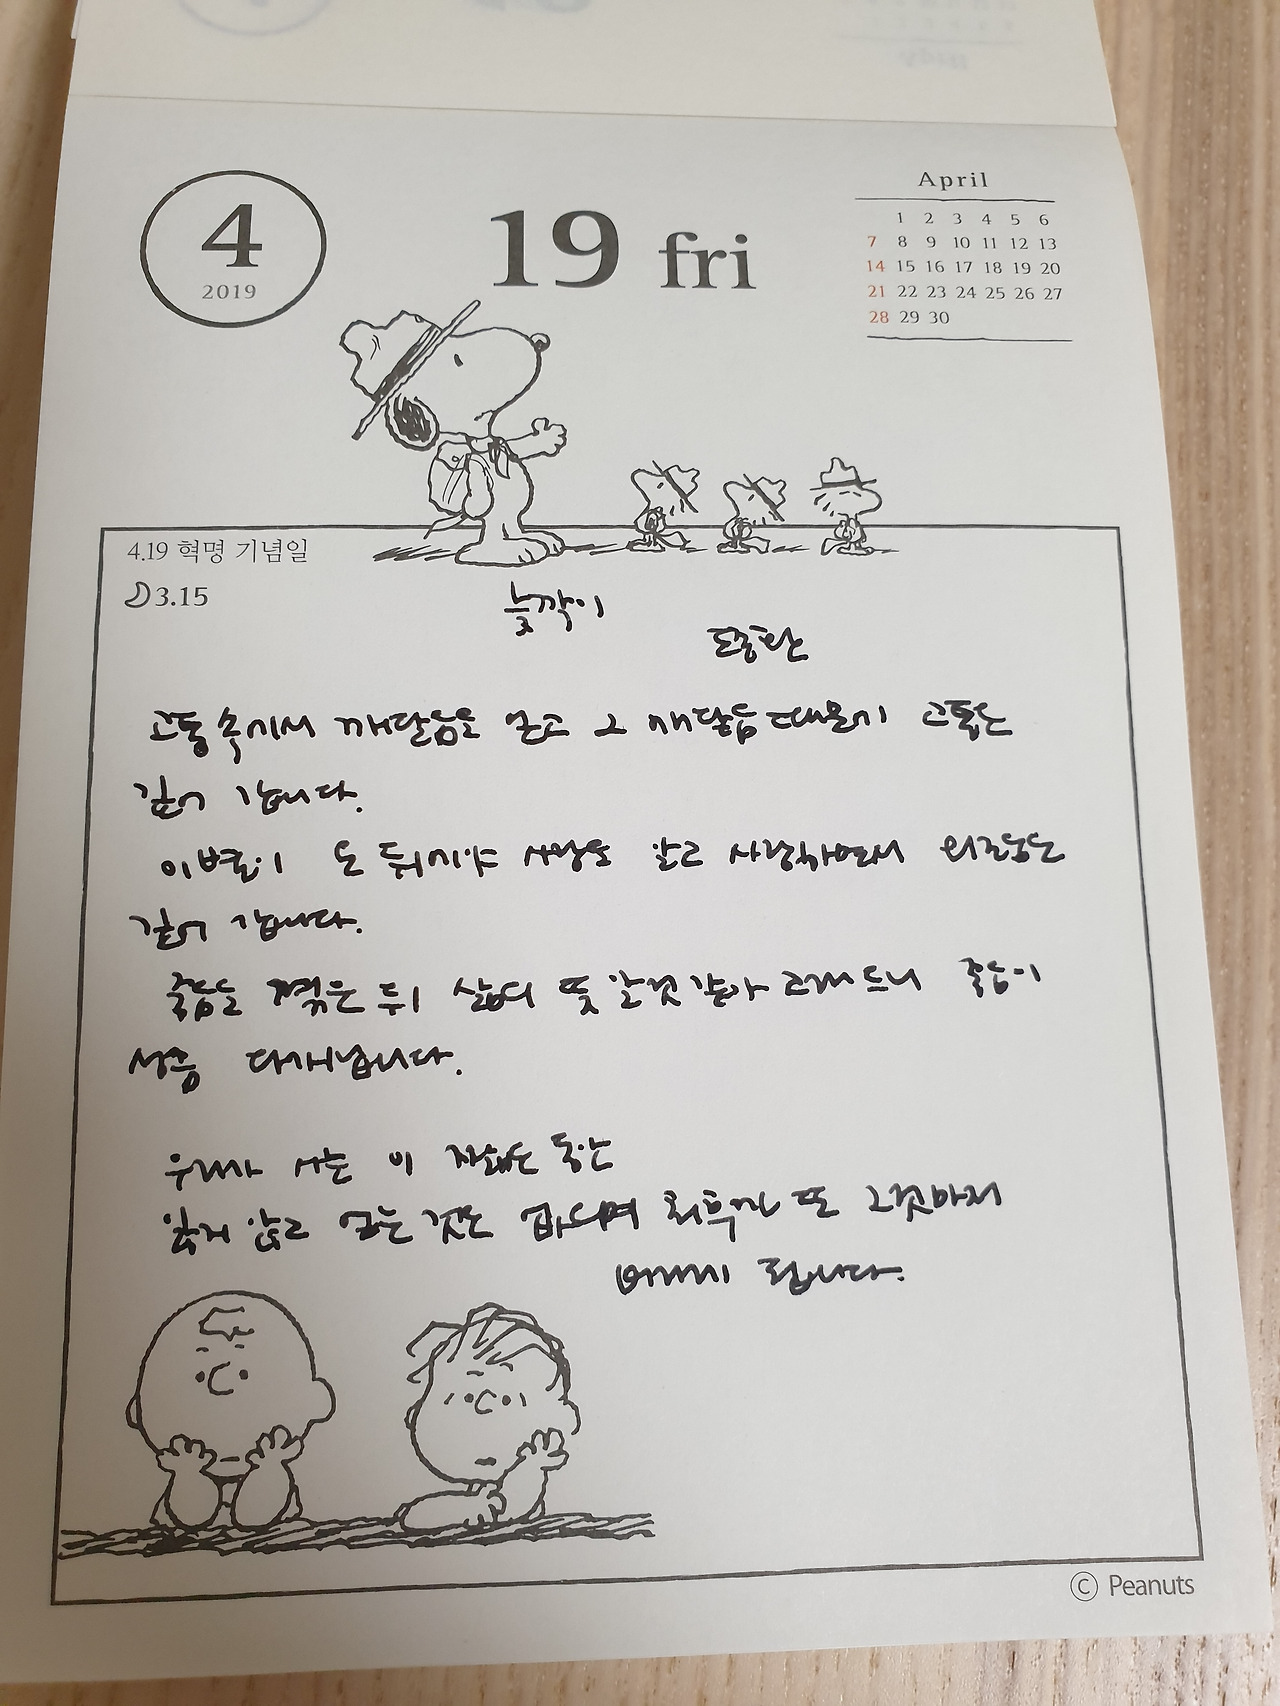 4
2019
19 fri
April
1 2 3 4 5 6
7 8 9 10 11 12 13
14 15 16 17 18 19 20
21 22 23 24 25 26 27
28 29 30
4.19 혁명 기념일
3.15
늦깎이
도종환
고통 속에서 깨달음을 얻고 그 깨달음 때문에 고통은
깊어 갑니다.
이별이 온 뒤에야 사랑을 알고 사랑하면서 외로움은
깊어 갑니다.
죽음을 겪은 뒤 삶의 뜻 알 것 같아 고개 드니 죽음이
성큼 다가섭니다.
우리가 사는 이 짧은 동안
잃지 않고 얻는 것은 없으며 최후엔 또 그것마저
버리게 됩니다.
© Peanuts